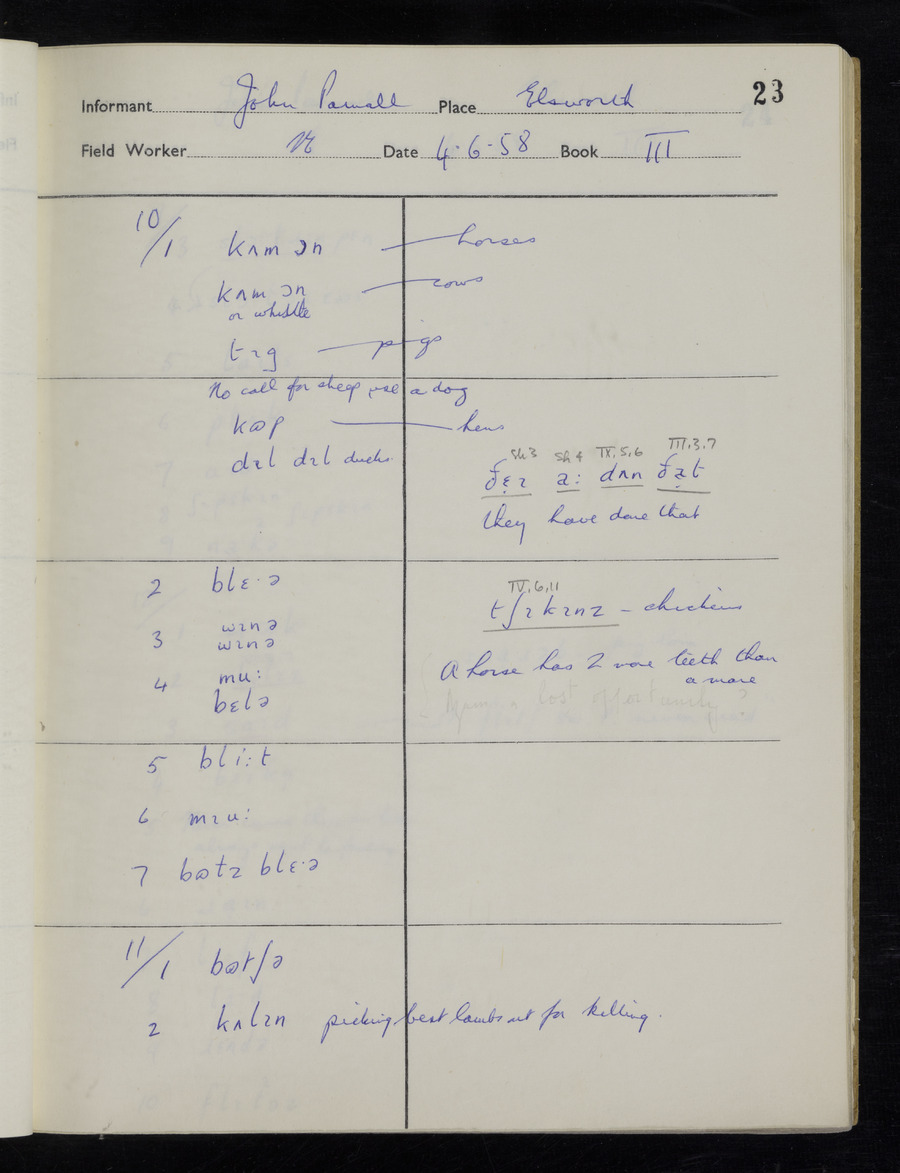 23
Informant John Parnall Place Elsworth
Field Worker Date 4.6.58 Book III
10/1 kʌm ɔn — horses
kʌm ɔn — cows
or whistle
tɪg — pigs
No call for sheep use a dog
kɒp — hens
dɪl dɪl ducks
Sh3 Sh4 IX.5,6 III.3.7
ðɛ̣ɪ a: dʌn ðạt
they have done that
2 blɛ·ə
IV.6,11
tʃɪkɪnz – chickens
3 wɪnə
wɪnə
A horse has 2 more teeth than
a mare
4 mu:
bɛlə
lost opportunity?
5 bli:t
6 mɪu:
7 bɒtɪ blɛ·ə
11/1 bɒtʃə
2 kʌlɪn picking best lambs out for killing.